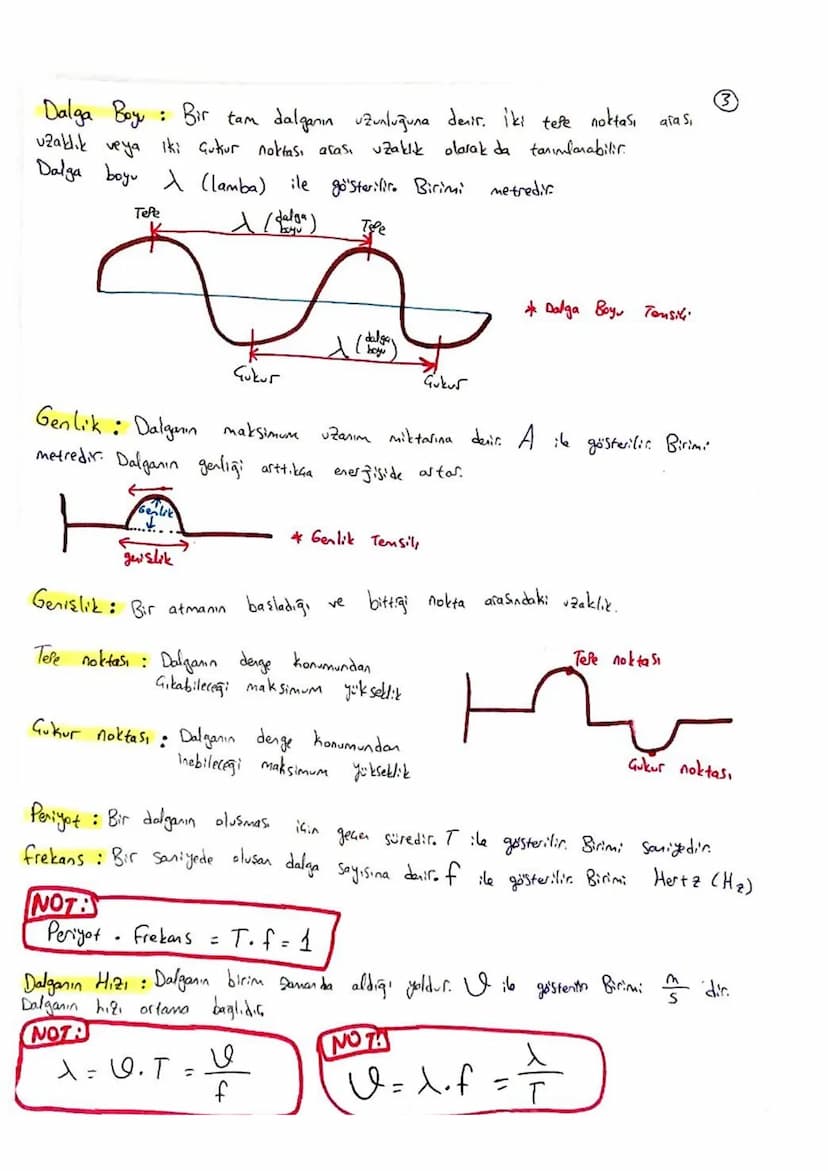 3
Dalga Boyu : Bir tam dalganın uzunluğuna denir. İki tepe noktası arası
uzaklık veya iki çukur noktası arası uzaklık olarak da tanımlanabilir.
Dalga boyu λ (lamba) ile gösterilir. Birimi metredir.
Tepe
λ (dalga boyu)
Tepe
* Dalga Boyu Temsili
λ (dalga boyu)
Çukur
Çukur
Genlik : Dalganın maksimum uzanım miktarına denir. A ile gösterilir. Birimi
metredir. Dalganın genliği arttıkça enerjiside artar.
Genlik
* Genlik Temsili
genişlik
Genişlik : Bir atmanın başladığı ve bittiği nokta arasındaki uzaklık.
Tepe noktası : Dalganın denge konumundan
çıkabileceği maksimum yükseklik
Tepe noktası
Çukur noktası : Dalganın denge konumundan
inebileceği maksimum yükseklik
Çukur noktası
Periyot : Bir dalganın oluşması için geçen süredir. T ile gösterilir. Birimi saniyedir.
Frekans : Bir saniyede oluşan dalga sayısına denir. f ile gösterilir. Birimi Hertz (Hz)
NOT:
Periyot . Frekans = T . f = 1
Dalganın Hızı : Dalganın birim zamanda aldığı yoldur. υ ile gösterilir. Birimi m/s 'dir.
Dalganın hızı ortama bağlıdır.
NOT:
λ = υ . T = υ/f
NOT:
υ = λ . f = λ/T